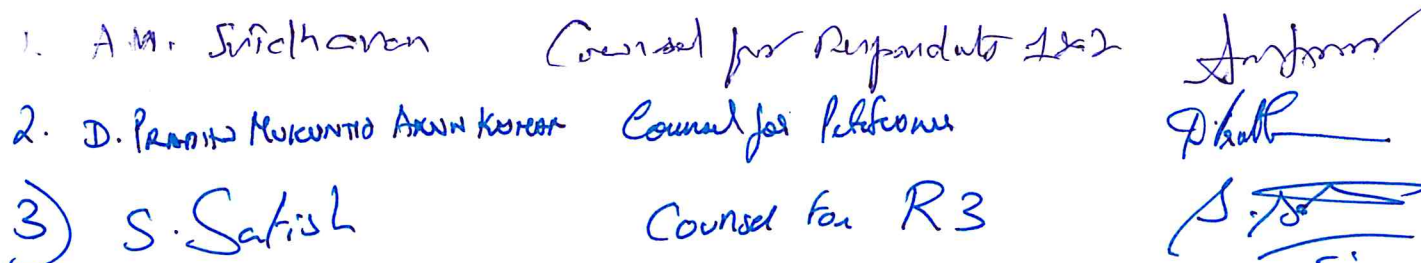 1. A.M. Sridharan Counsel for Respondents 1&2
2. D. PRADHIP MUKUNTHO ARUN KUMAR Counsel for Petitioner
3) S. Satish Counsel for R3